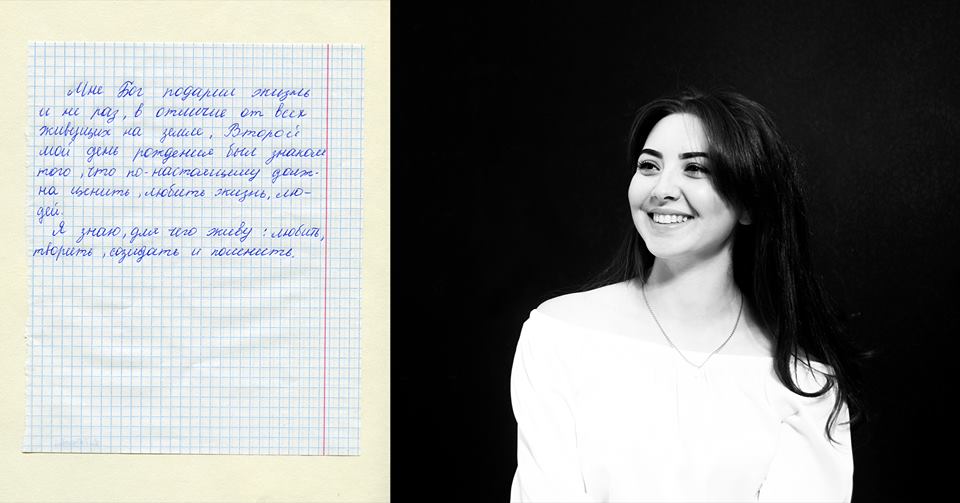 Мне Бог подарил жизнь
и не раз, в отличие от всех
живущих на земле. Второй
мой день рождения был знаком
того, что по-настоящему долж-
на ценить, любить жизнь, лю-
дей.
Я знаю, для чего живу: любить,
творить, созидать и помнить.